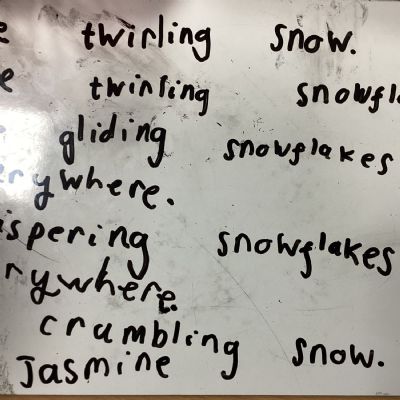 e twirling snow.
e twinling snowfl
gliding snowflakes
erywhere.
ispering snowflakes
rywhere.
crumbling snow.
Jasmine